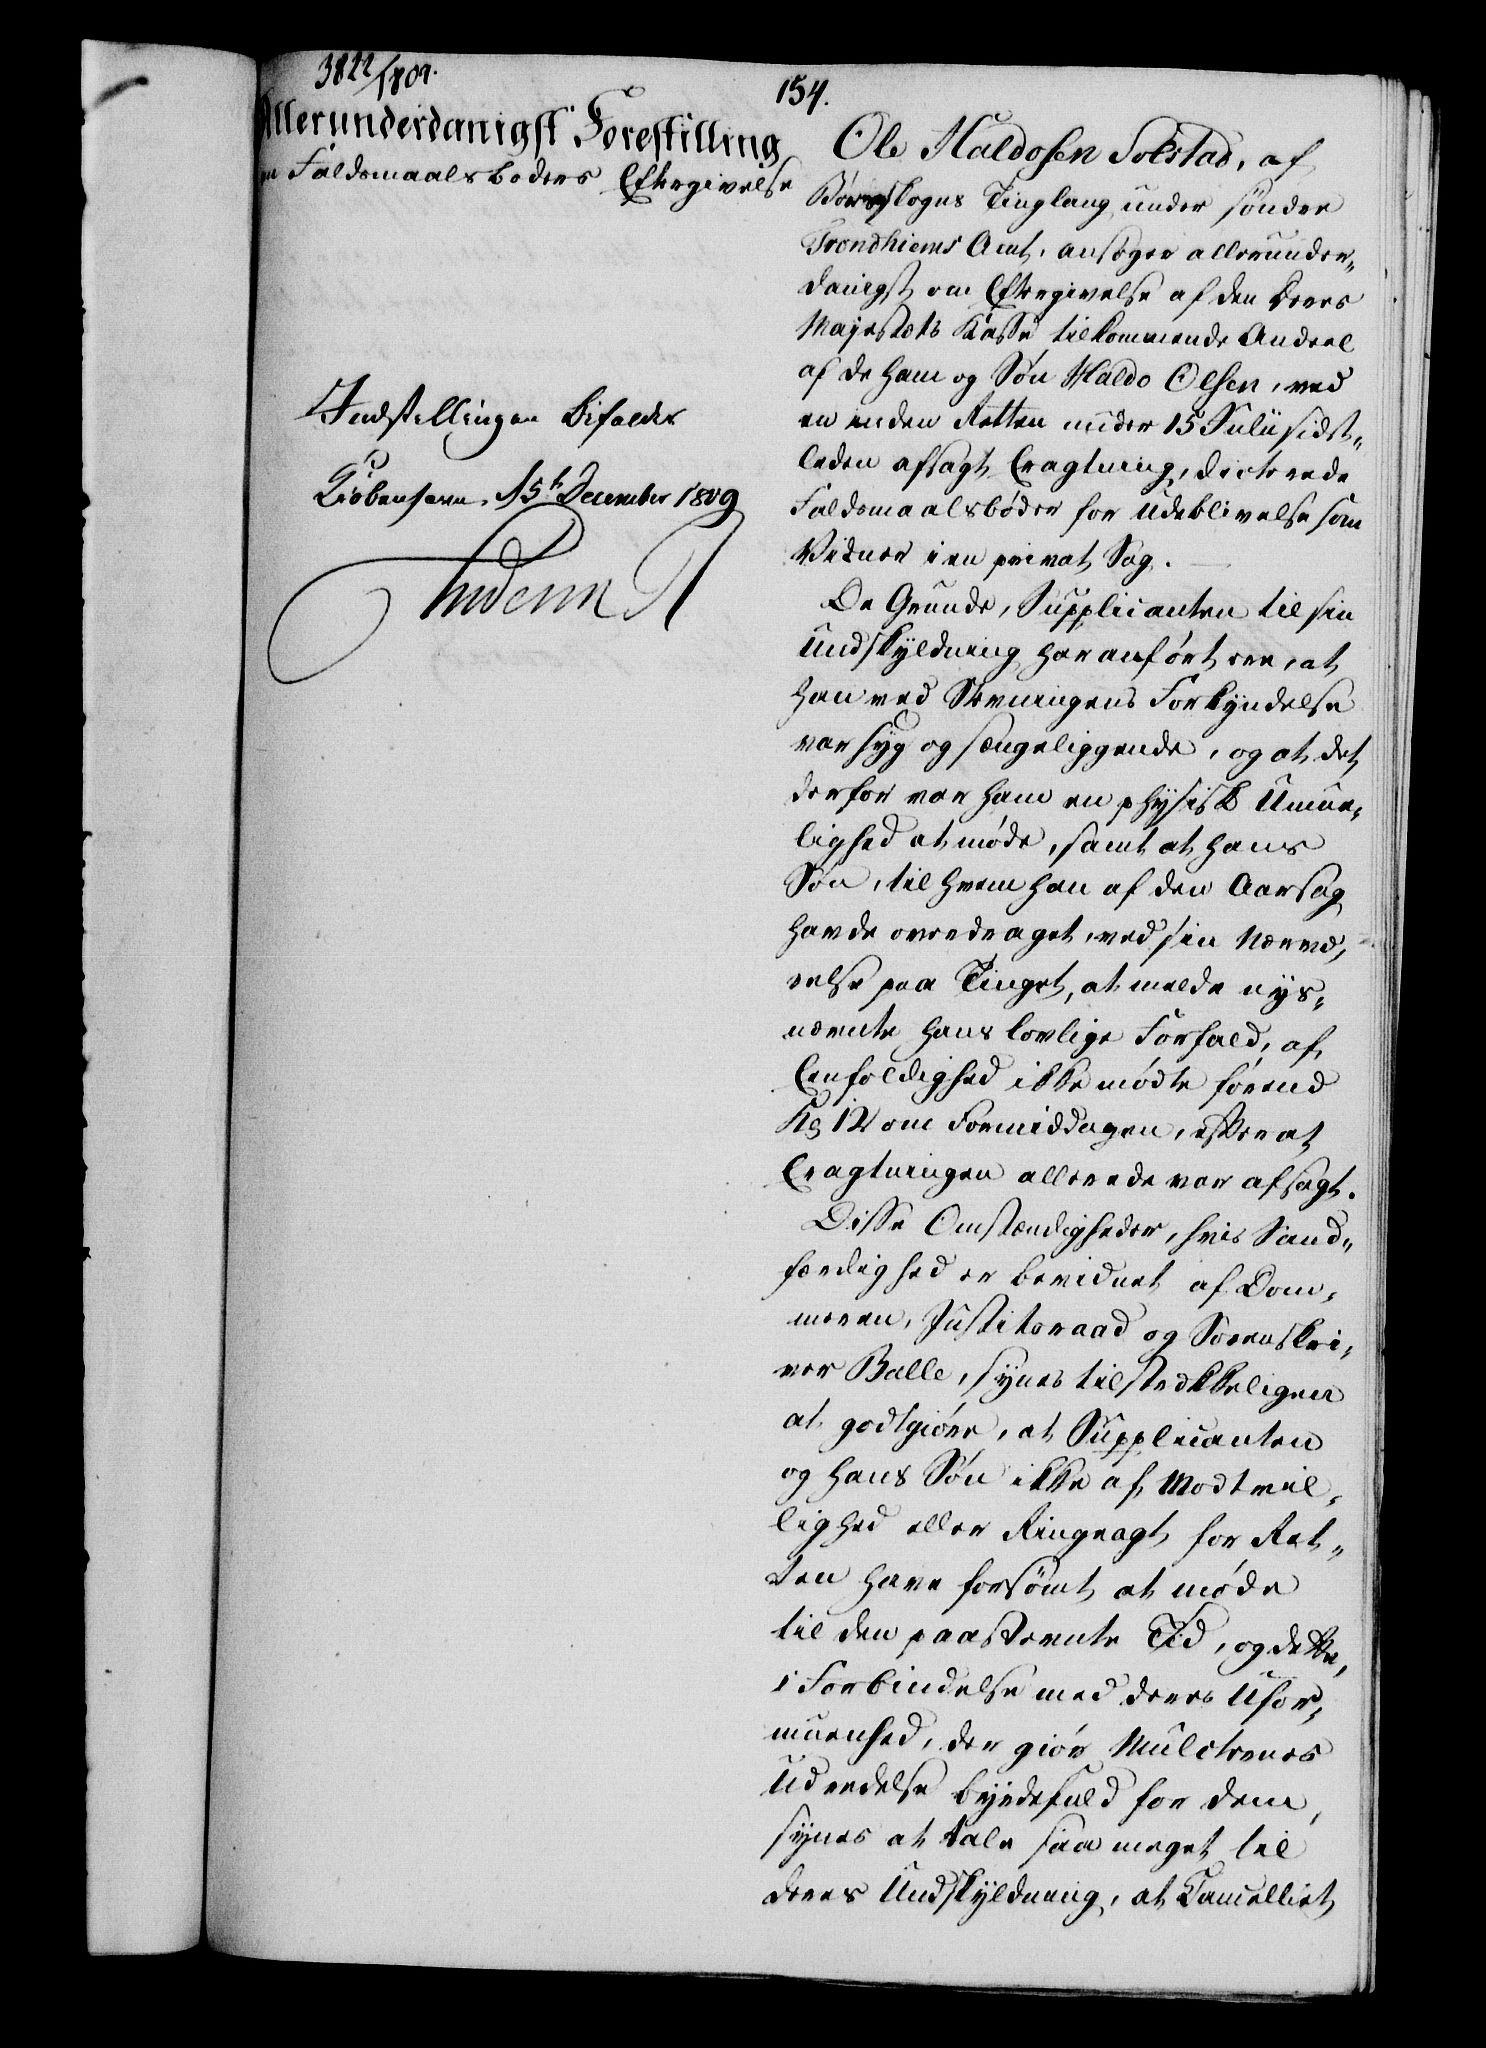 3822/1809.
154.
Allerunderdanigst Forestilling
Faldsmaalsboders Eftergivelse
Indstillingen bifaldes
Kiøbenhavn, 15de December 1809
Frederik R
Ole Haldosen Solstad, af
Børseskogns Tinglaug under søndre
Trondhiems Amt, ansøger allerunder„
danigst om Eftergivelse af den Deres
Majestæts Kasse tilkommende Andeel
af de ham og Søn Haldo Olsen, ved
en inden Retten under 15 Julii sidst„
leden afsagt Eragtning, dicterede
Faldsmaalsbøder for Udeblivelse som
Vidner i en privat Sag.
De Grunde, Supplicanten til sin
Undskyldning har anført ere, at
han ved Stevningens Forkyndelse
var syg og sængeliggende, og at det
derfor var ham en physisk Umue„
lighed at møde, samt at hans
Søn, til hvem han af den Aarsag
havde overdraget, ved sin Nærvæ„
relse paa Tinget, at melde nys„
nævnte hans lovlige Forfald, af
Eenfoldighed ikke mødte førend
Kl 12 om Formiddagen, efterat
Eragtningen allerede var afsagt.
Disse Omstændigheder, hvis Sand„
færdighed er bevidnet af Dom„
meren, Justitsraad og Sorenskri„
ver Balle, synes tilstrækkeligen
at godtgiøre, at Supplicanten
og hans Søn ikke af Modtvil„
lighed eller Ringeagt for Ret„
ten have forsømt at møde
til den paastævnte Tid, og dette,
i Forbindelse med deres Ufor„
muenhed, der giør Mulcternes
Udredelse byrdefuld for dem,
synes at tale saa meget til
deres Undskyldning, at Cancelliet